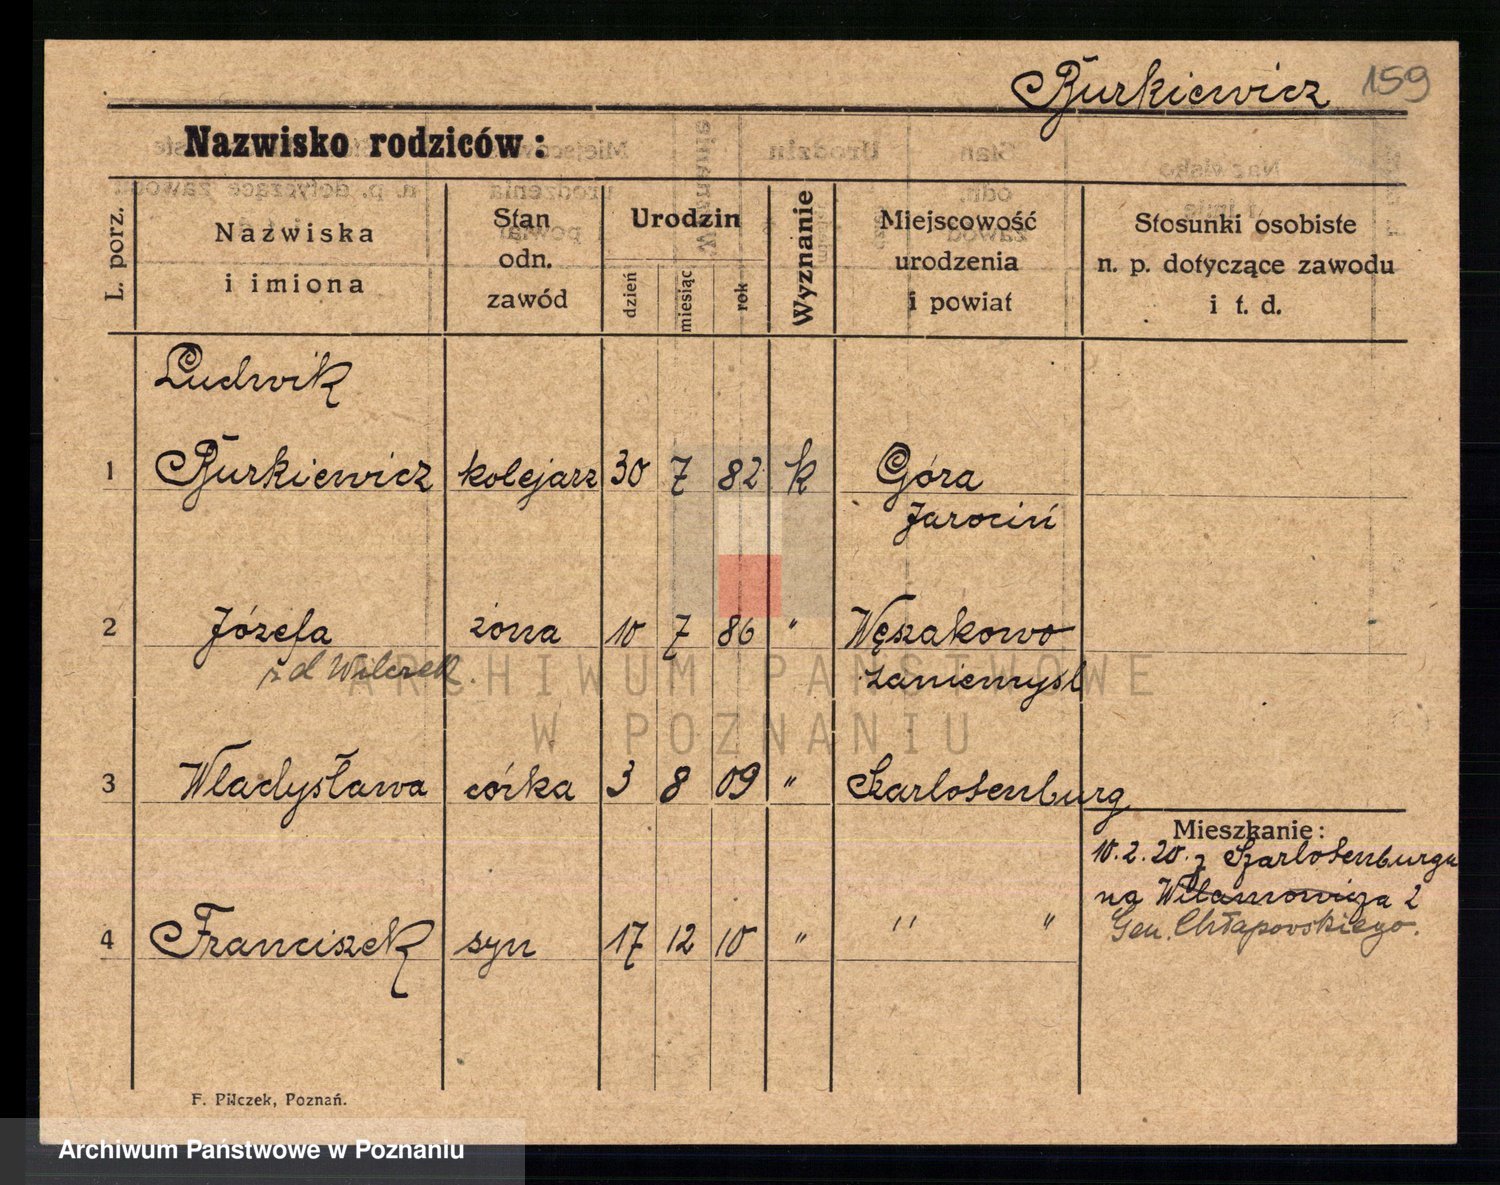 Burkiewicz 159
Nazwisko rodziców:
L. porz.
Nazwiska
i imiona
Stan
odn.
zawód
Urodzin
dzień
miesiąc
rok
Wyznanie
Miejscowość
urodzenia
i powiat
Stosunki osobiste
n. p. dotyczące zawodu
i t. d.
Ludwik
1 Burkiewicz kolejarz 30 7 82 k Góra
Jarocin
2 Józefa żona 10 7 86 "
zaniemysl
z d Wilczek.
3 Wladysława córka 3 8 09 " Szarlotenburg
Mieszkanie:
10.2.20. z Szarlotenburgu
na Wilamowicza 2
Gen. Chłapowskiego.
4 Franciszek syn 17 12 10 " " "
F. Pilczek, Poznań.
ARCHIWUM PAŃSTWOWE
W POZNANIU
Archiwum Państwowe w Poznaniu